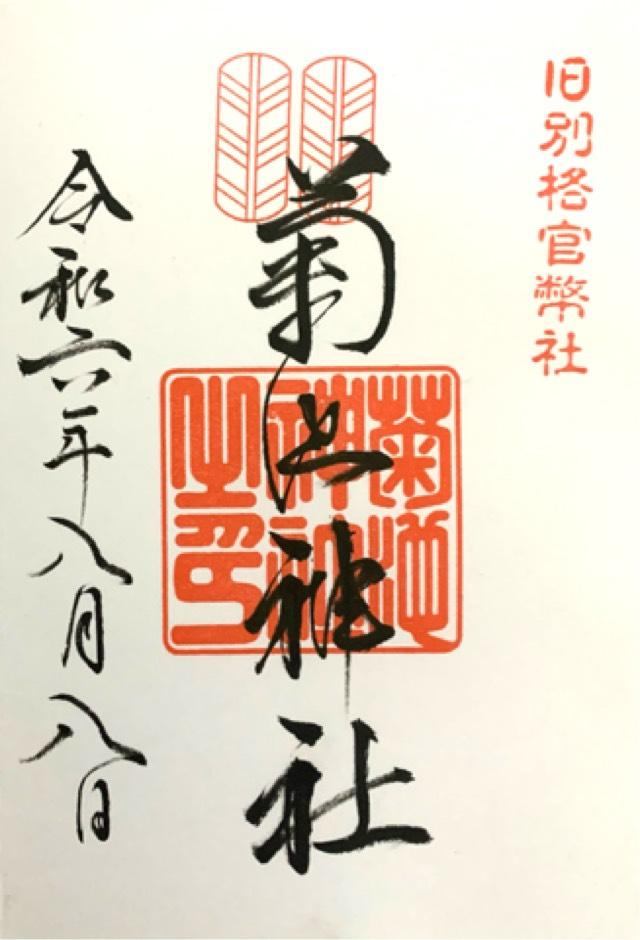 旧別格官幣社
菊池神社
菊池
神社
之印
令和六年八月八日